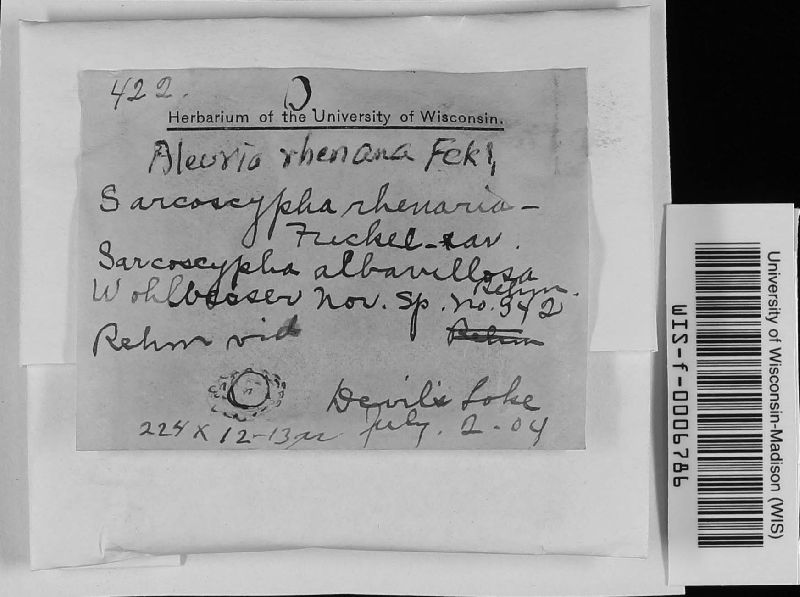 422.
Herbarium of the University of Wisconsin.
Aleuria rhenana Fckl,
Sarcoscypha rhenaria -
Fuckel - rav.
Sarcoscypha albavillosa
Rehm.
Wohlbesser nov. sp. no. 542
Rehm vid Rehm
Devil's Lake
224 X 12-13 µ July. 2-04
University of Wisconsin-Madison (WIS)
WIS-f-0006786